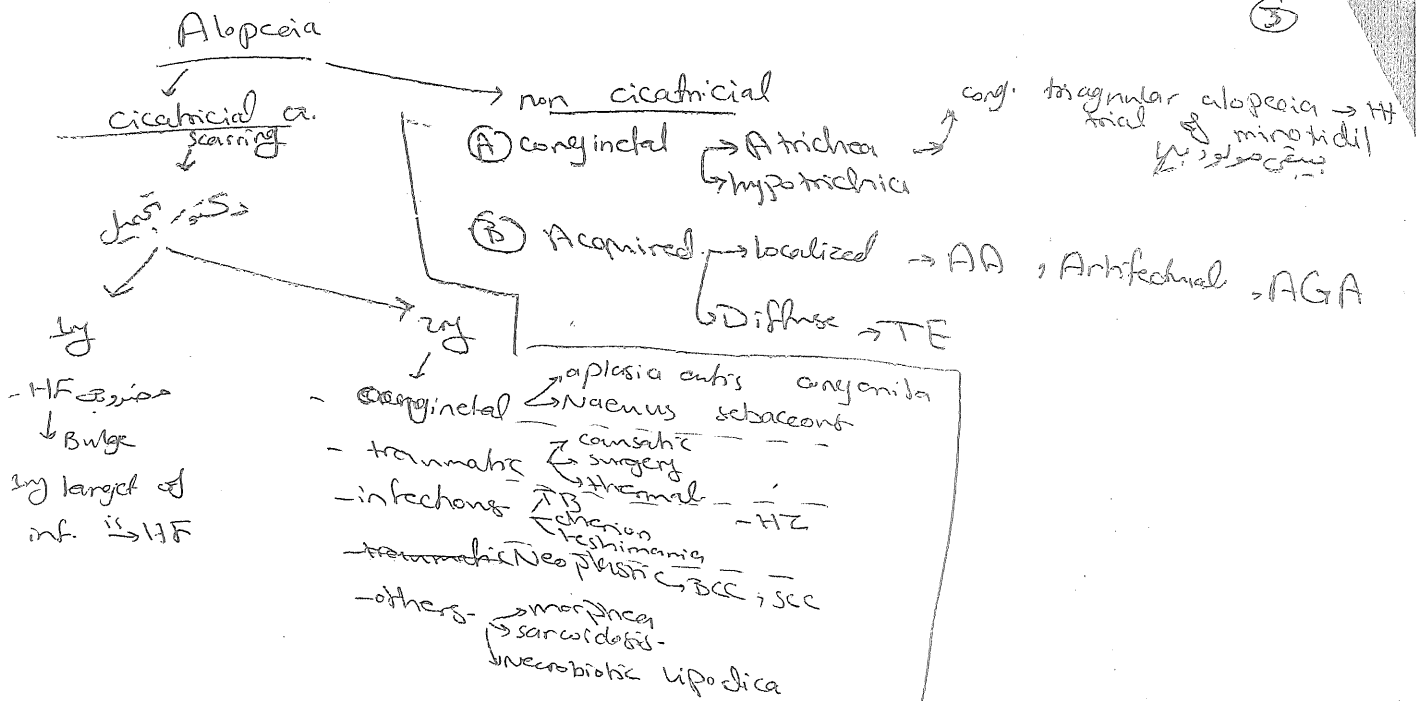 3
Alopceia
cicatricial a.
scarring
دكتور تجميل
1ry
- HF مضروب
Bulge
1ry target of
inf. is → HF
2ry
- conginetal → aplasia cutis congenita
→ Naevus sebaceous
- traumatic → caustic
→ surgery
→ thermal
- infections → TB - HZ
→ cherion
→ leshimania
- traumatic Neoplastic → BCC, SCC
- others - → morphea
→ sarcoidosis -
→ necrobiotic lipodica
non cicatricial
A conginetal → Atrichea →
→ hypotrichia
cong. triagnular alopceia → Ht
trial of minoxidil
بيبقى مولود بيها
B Acquired → localized → AA, Artifectual, AGA
→ Diffuse → TE